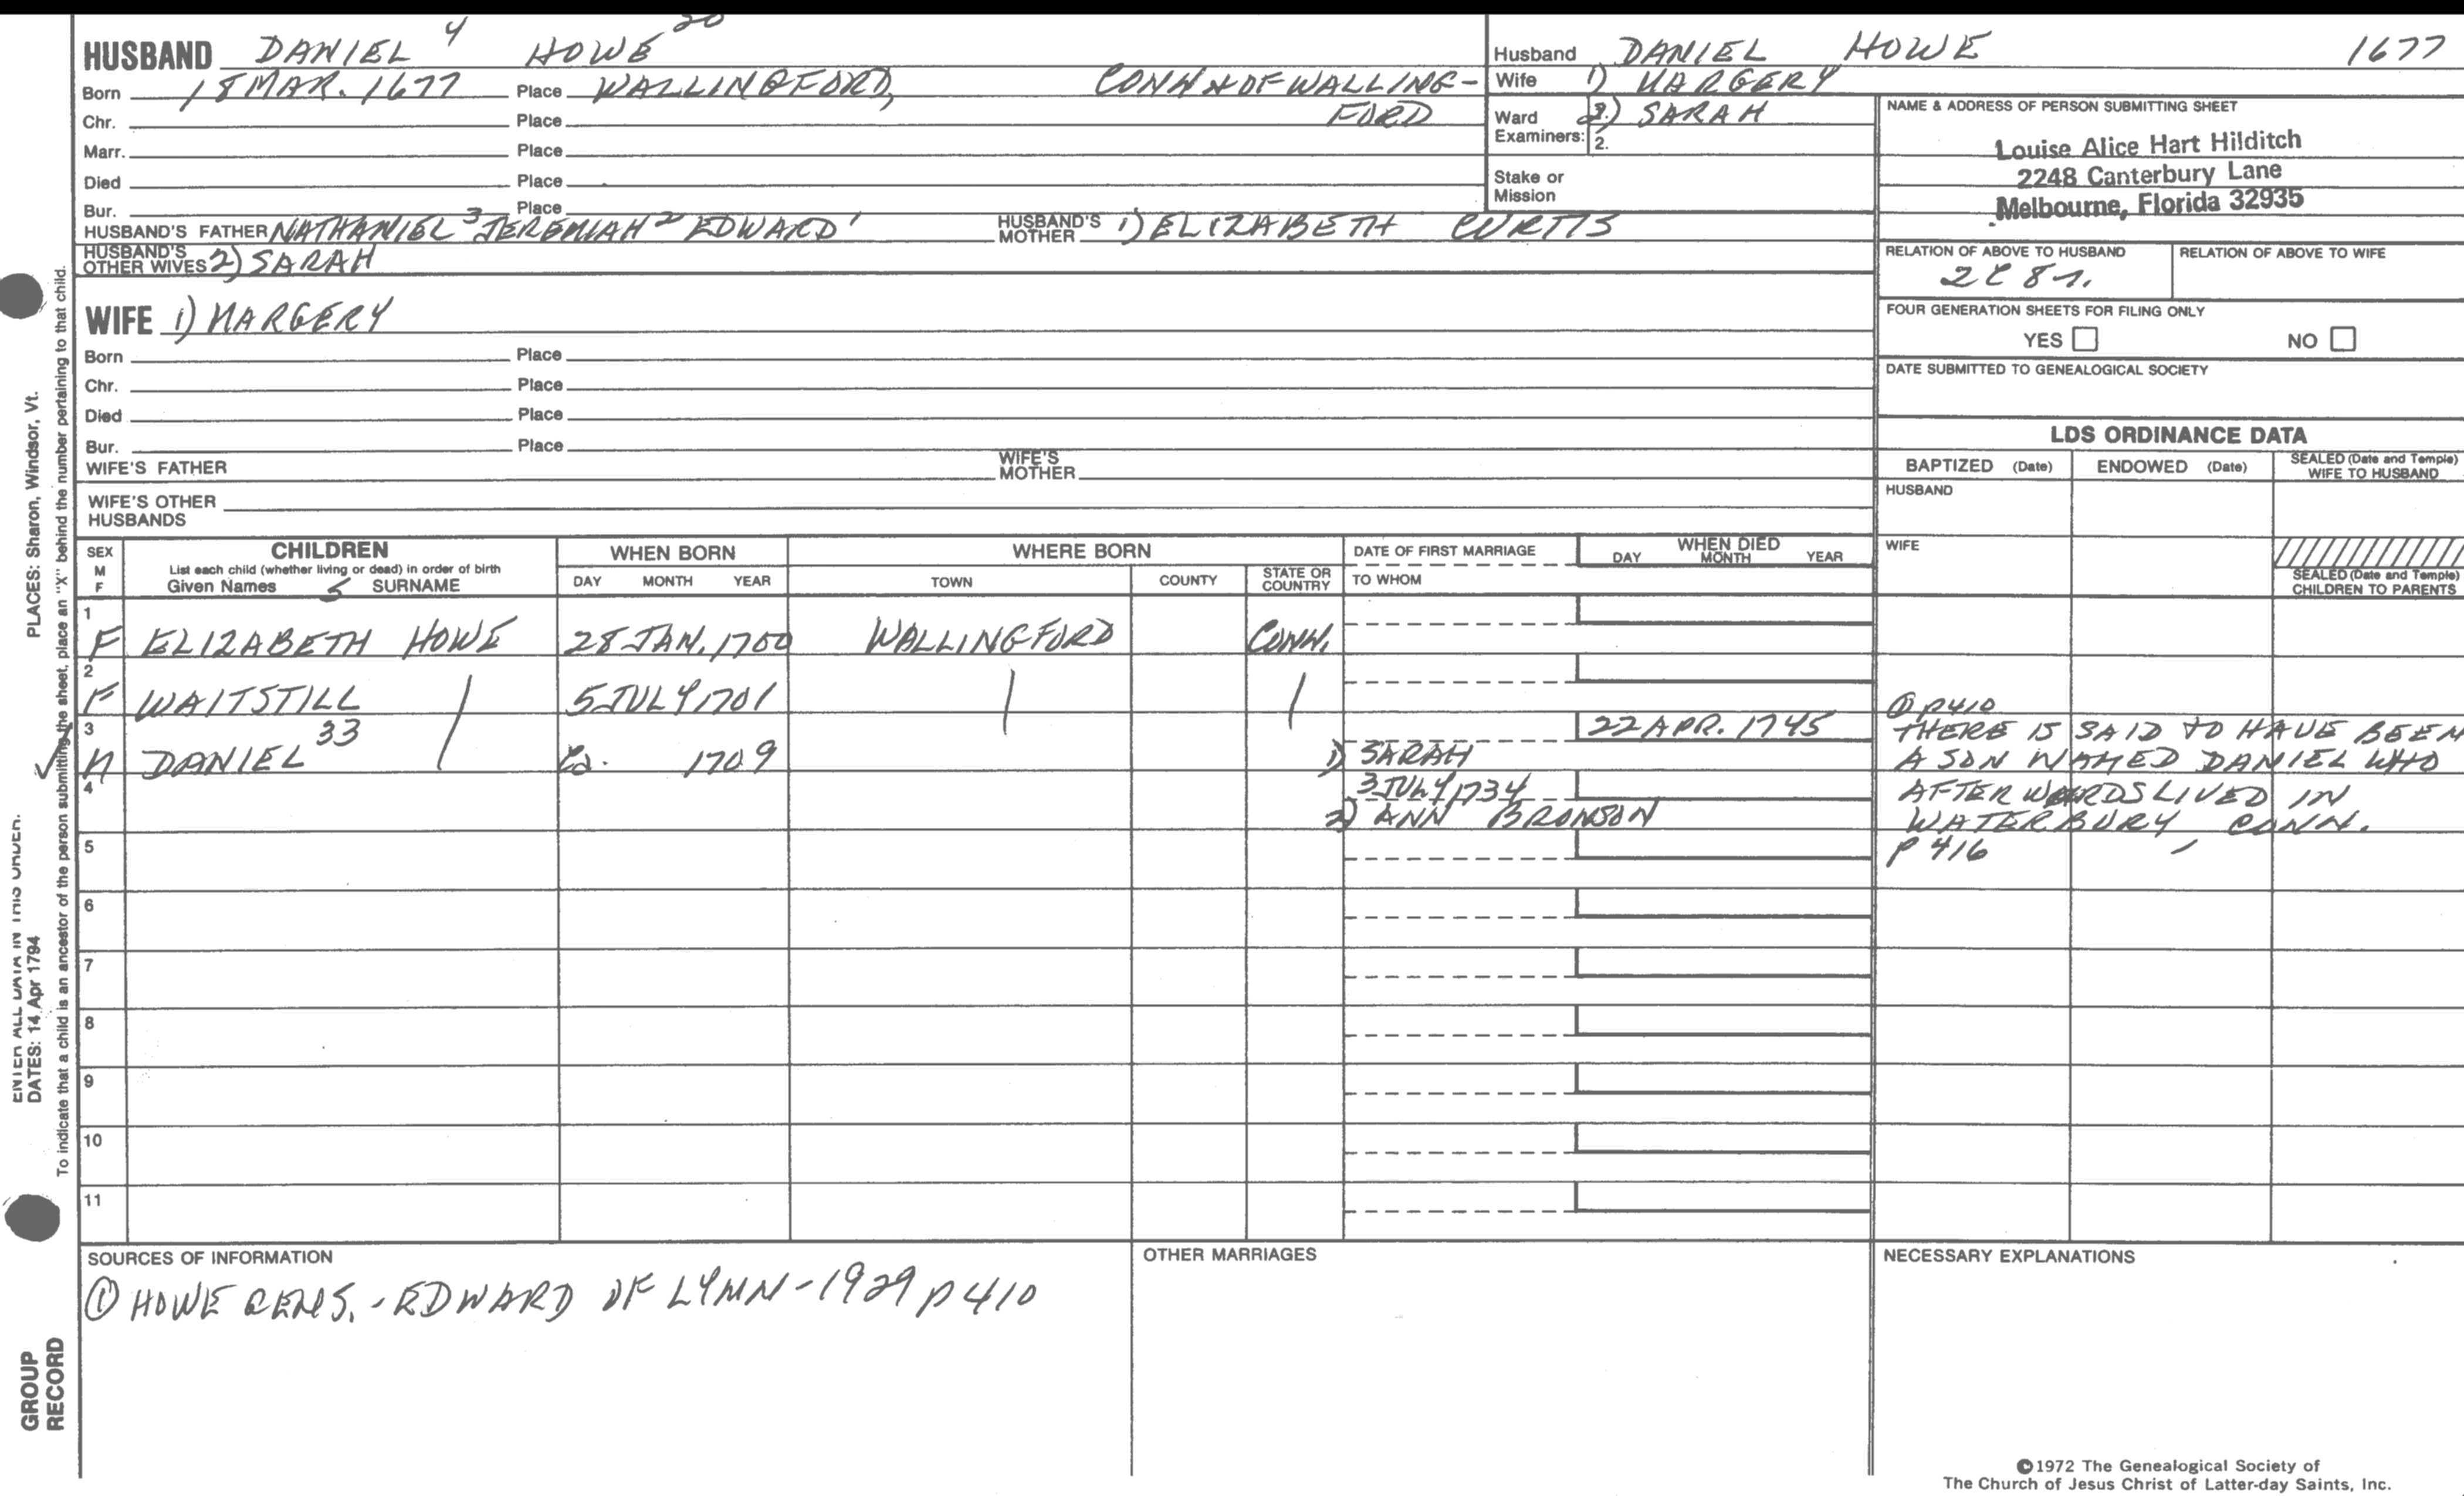 HUSBAND DANIEL 4 HOWE 20
Born 18 MAR. 1677 Place WALLINGFORD, CONN N OF WALLING-
FORD
Chr. Place
Marr. Place
Died Place
Bur. Place
HUSBAND'S FATHER NATHANIEL 3 JEREMIAH 2 EDWARD 1 HUSBAND'S MOTHER 1) ELIZABETH CURTIS
HUSBAND'S OTHER WIVES 2) SARAH
WIFE 1) MARGERY
Born Place
Chr. Place
Died Place
Bur. Place
WIFE'S FATHER WIFE'S MOTHER
WIFE'S OTHER HUSBANDS
Husband DANIEL HOWE 1677
Wife 1) MARGERY
Ward Examiners: 2.) SARAH
2.
Stake or Mission
NAME & ADDRESS OF PERSON SUBMITTING SHEET
Louise Alice Hart Hilditch
2248 Canterbury Lane
Melbourne, Florida 32935
RELATION OF ABOVE TO HUSBAND RELATION OF ABOVE TO WIFE
2C 8r.
FOUR GENERATION SHEETS FOR FILING ONLY
YES NO
DATE SUBMITTED TO GENEALOGICAL SOCIETY
LDS ORDINANCE DATA
BAPTIZED (Date) ENDOWED (Date) SEALED (Date and Temple) WIFE TO HUSBAND
HUSBAND
WIFE
SEALED (Date and Temple) CHILDREN TO PARENTS
SEX M F
CHILDREN
List each child (whether living or dead) in order of birth
Given Names 5 SURNAME
WHEN BORN
DAY MONTH YEAR
WHERE BORN
TOWN COUNTY STATE OR COUNTRY
DATE OF FIRST MARRIAGE
TO WHOM
WHEN DIED
DAY MONTH YEAR
1
F ELIZABETH HOWE 28 JAN. 1700 WALLINGFORD CONN.
2
F WAITSTILL 5 JULY 1701
3 22 APR. 1745
M DANIEL 33 Ca. 1709 1) SARAH
4 3 JULY 1734
2) ANN BRONSON
5
6
7
8
9
10
11
① P410
THERE IS SAID TO HAVE BEEN
A SON NAMED DANIEL WHO
AFTERWARDS LIVED IN
WATERBURY, CONN.
P 416
SOURCES OF INFORMATION
① HOWE GENS. - EDWARD OF LYNN - 1929 P 410
OTHER MARRIAGES
NECESSARY EXPLANATIONS
©1972 The Genealogical Society of
The Church of Jesus Christ of Latter-day Saints, Inc.
PLACES: Sharon, Windsor, Vt.
ENTER ALL DATA IN THIS ORDER.
DATES: 14 Apr 1794
To indicate that a child is an ancestor of the person submitting the sheet, place an "X" behind the number pertaining to that child.
GROUP
RECORD